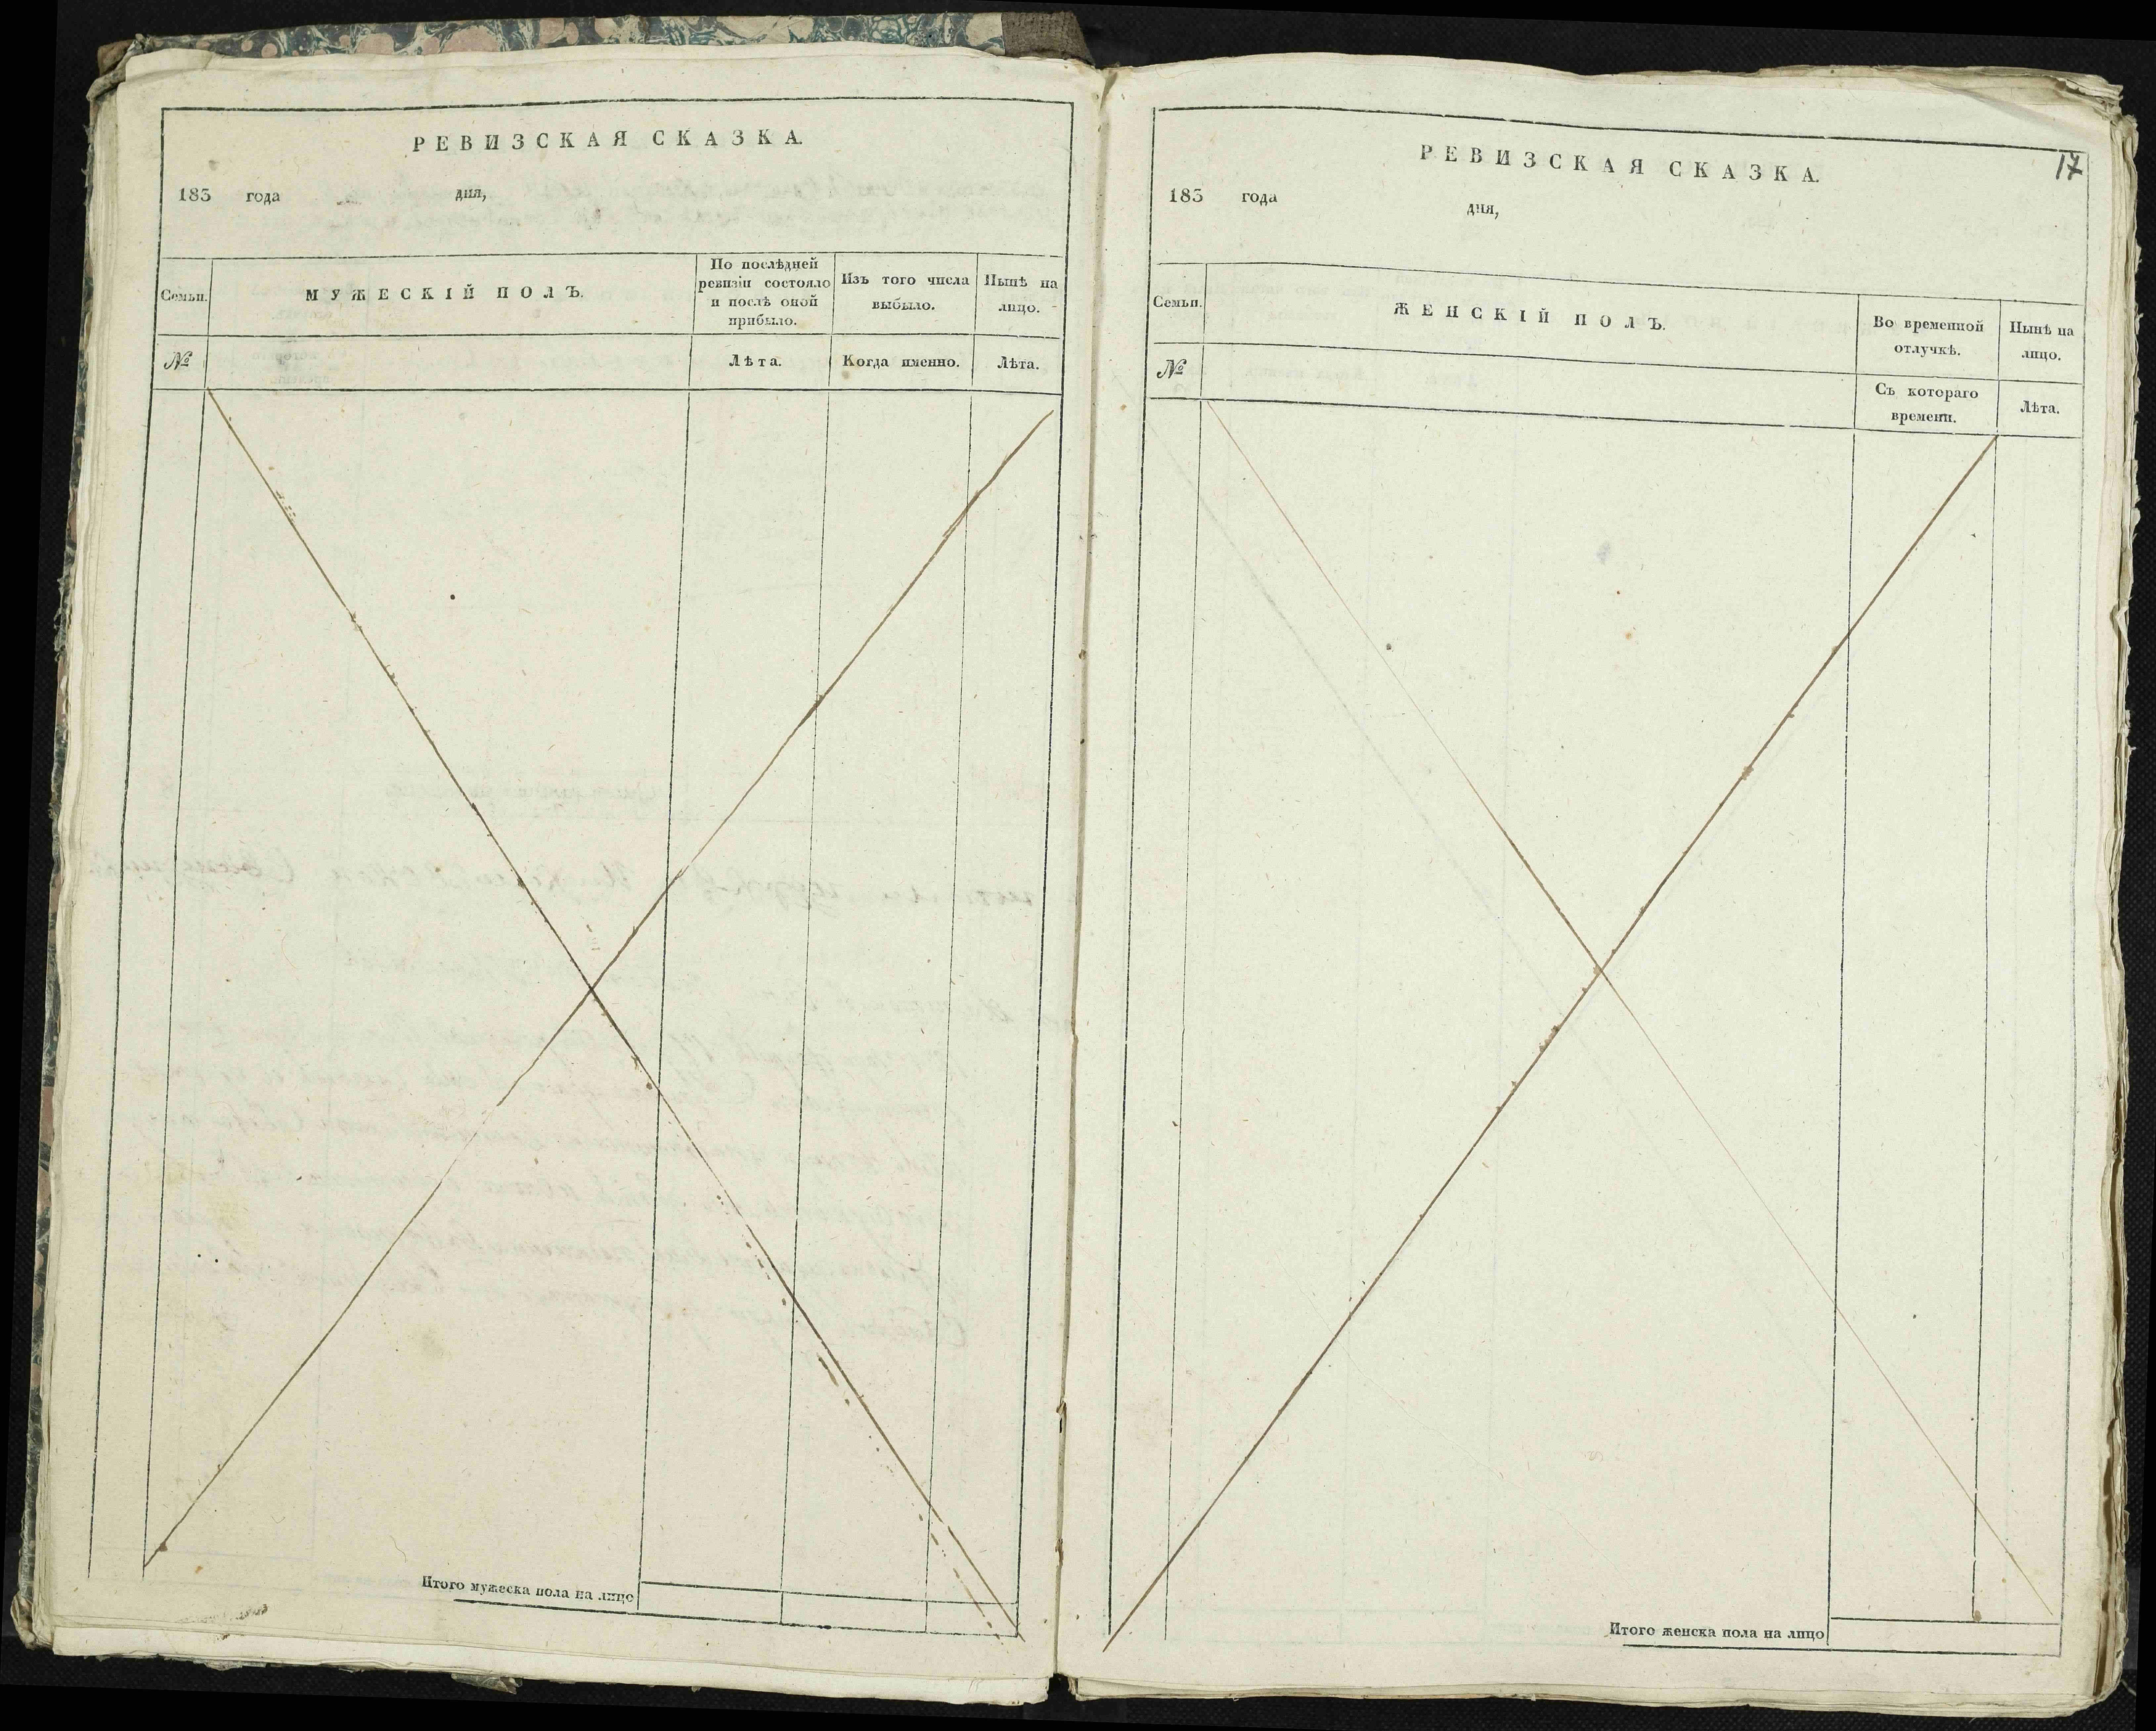 РЕВИЗСКАЯ СКАЗКА.
183 года дня,
Семьи.
МУЖЕСКІЙ ПОЛЪ.
По послѣдней
ревизіи состояло
и послѣ оной
прибыло.
Изъ того числа
выбыло.
Нынѣ на
лицо.
№
Лѣта.
Когда именно.
Лѣта.
Итого мужеска пола на лицо
17
РЕВИЗСКАЯ СКАЗКА.
183 года дня,
Семьи.
ЖЕНСКІЙ ПОЛЪ.
Во временной
отлучкѣ.
Нынѣ на
лицо.
№
Съ котораго
времени.
Лѣта.
Итого женска пола на лицо